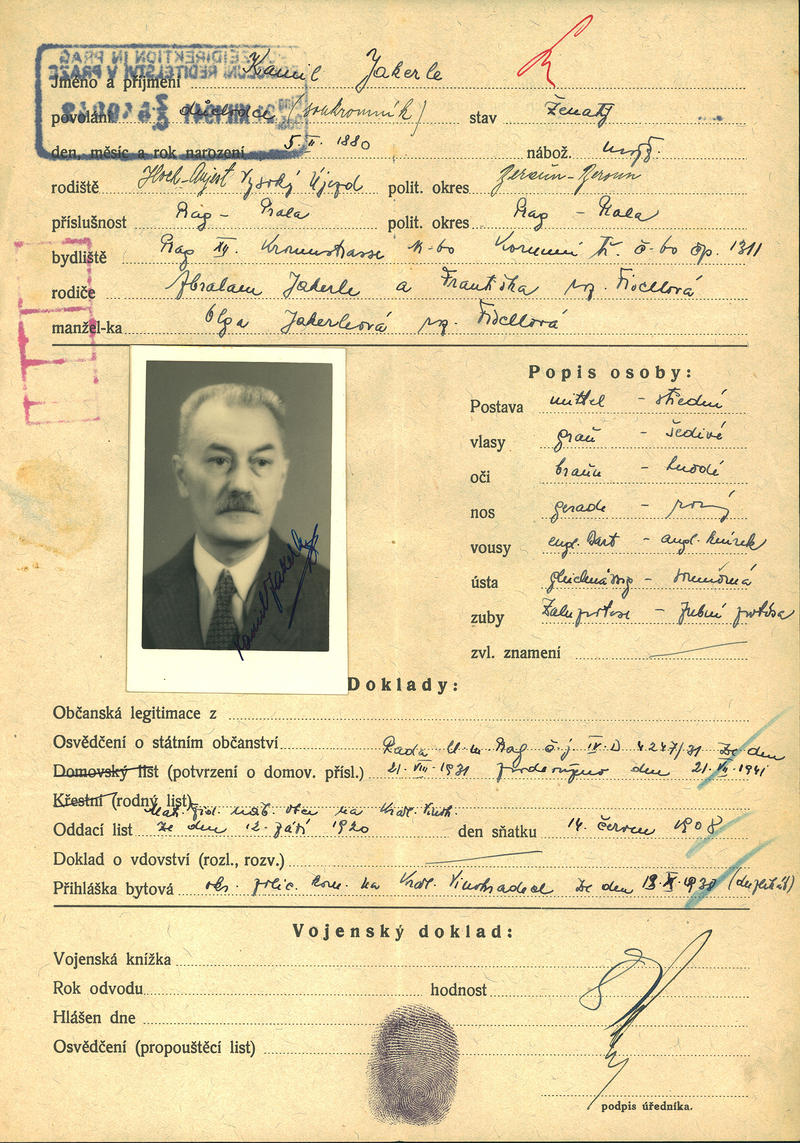 POLIZEIDIREKTION IN PRAG
POLICEJNÍ ŘEDITELSTVÍ V PRAZE
Jméno a příjmení Kamil Jakerle
povolání důchodce (soukromník) stav ženatý
den, měsíc a rok narození 5. II. 1880 nábož. mojž.
rodiště Hoch-Aujest Vysoký Újezd polit. okres Beraun-Beroun
příslušnost Prag - Praha polit. okres Prag - Praha
bydliště Prag XII. Kronenstrasse N-60 Korunní tř. č-60 čp. 1311
rodiče Abraham Jakerle a Františka roz. Fidlerová
manžel-ka Olga Jakerleová roz.
Popis osoby:
Postava mittel - střední
vlasy grau - šedivé
oči braun - hnědé
nos gerade - rovný
vousy engl. Bart - angl. knírek
ústa gleichmässig - souměrná
zuby Zahnprotese - zubní protésa
zvl. znamení
Kamil Jakerle
Doklady:
Občanská legitimace z
Osvědčení o státním občanství Rada hl. m. Prag č. j. IV. D 4247/31 ze den
Domovský list (potvrzení o domov. přísl.) 21. VIII. 1931 prodlouženo den 21. VII. 1941
Křestní (rodný list)
Mat. žid. náb. obce na Král. Vinoh.
Oddací list ze den 12. září 1920 den sňatku 14. červen 1908
Doklad o vdovství (rozl., rozv.)
Přihláška bytová okr. polic. kom. na Král. Vinohradech ze den 13. X. 1938 (duplikát)
Vojenský doklad:
Vojenská knížka
Rok odvodu hodnost
Hlášen dne
Osvědčení (propouštěcí list)
podpis úředníka.